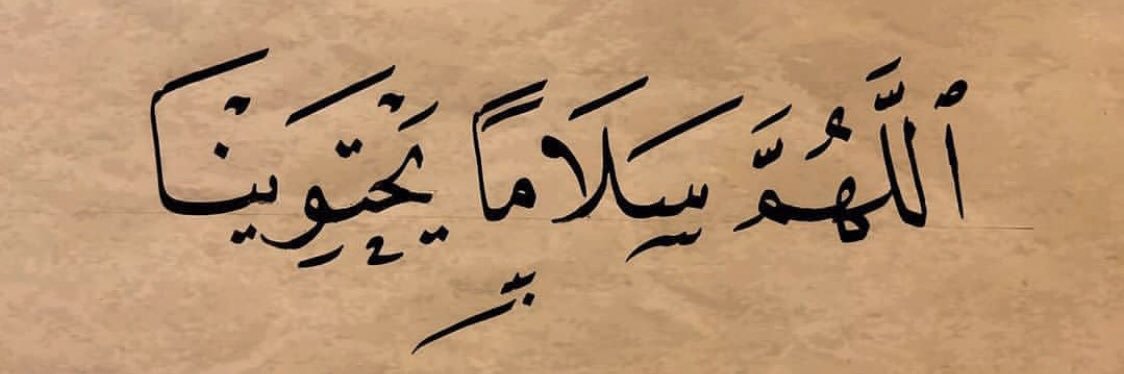 ٱللَّهُمَّ سَلَامًا يَحْتَوِينَا